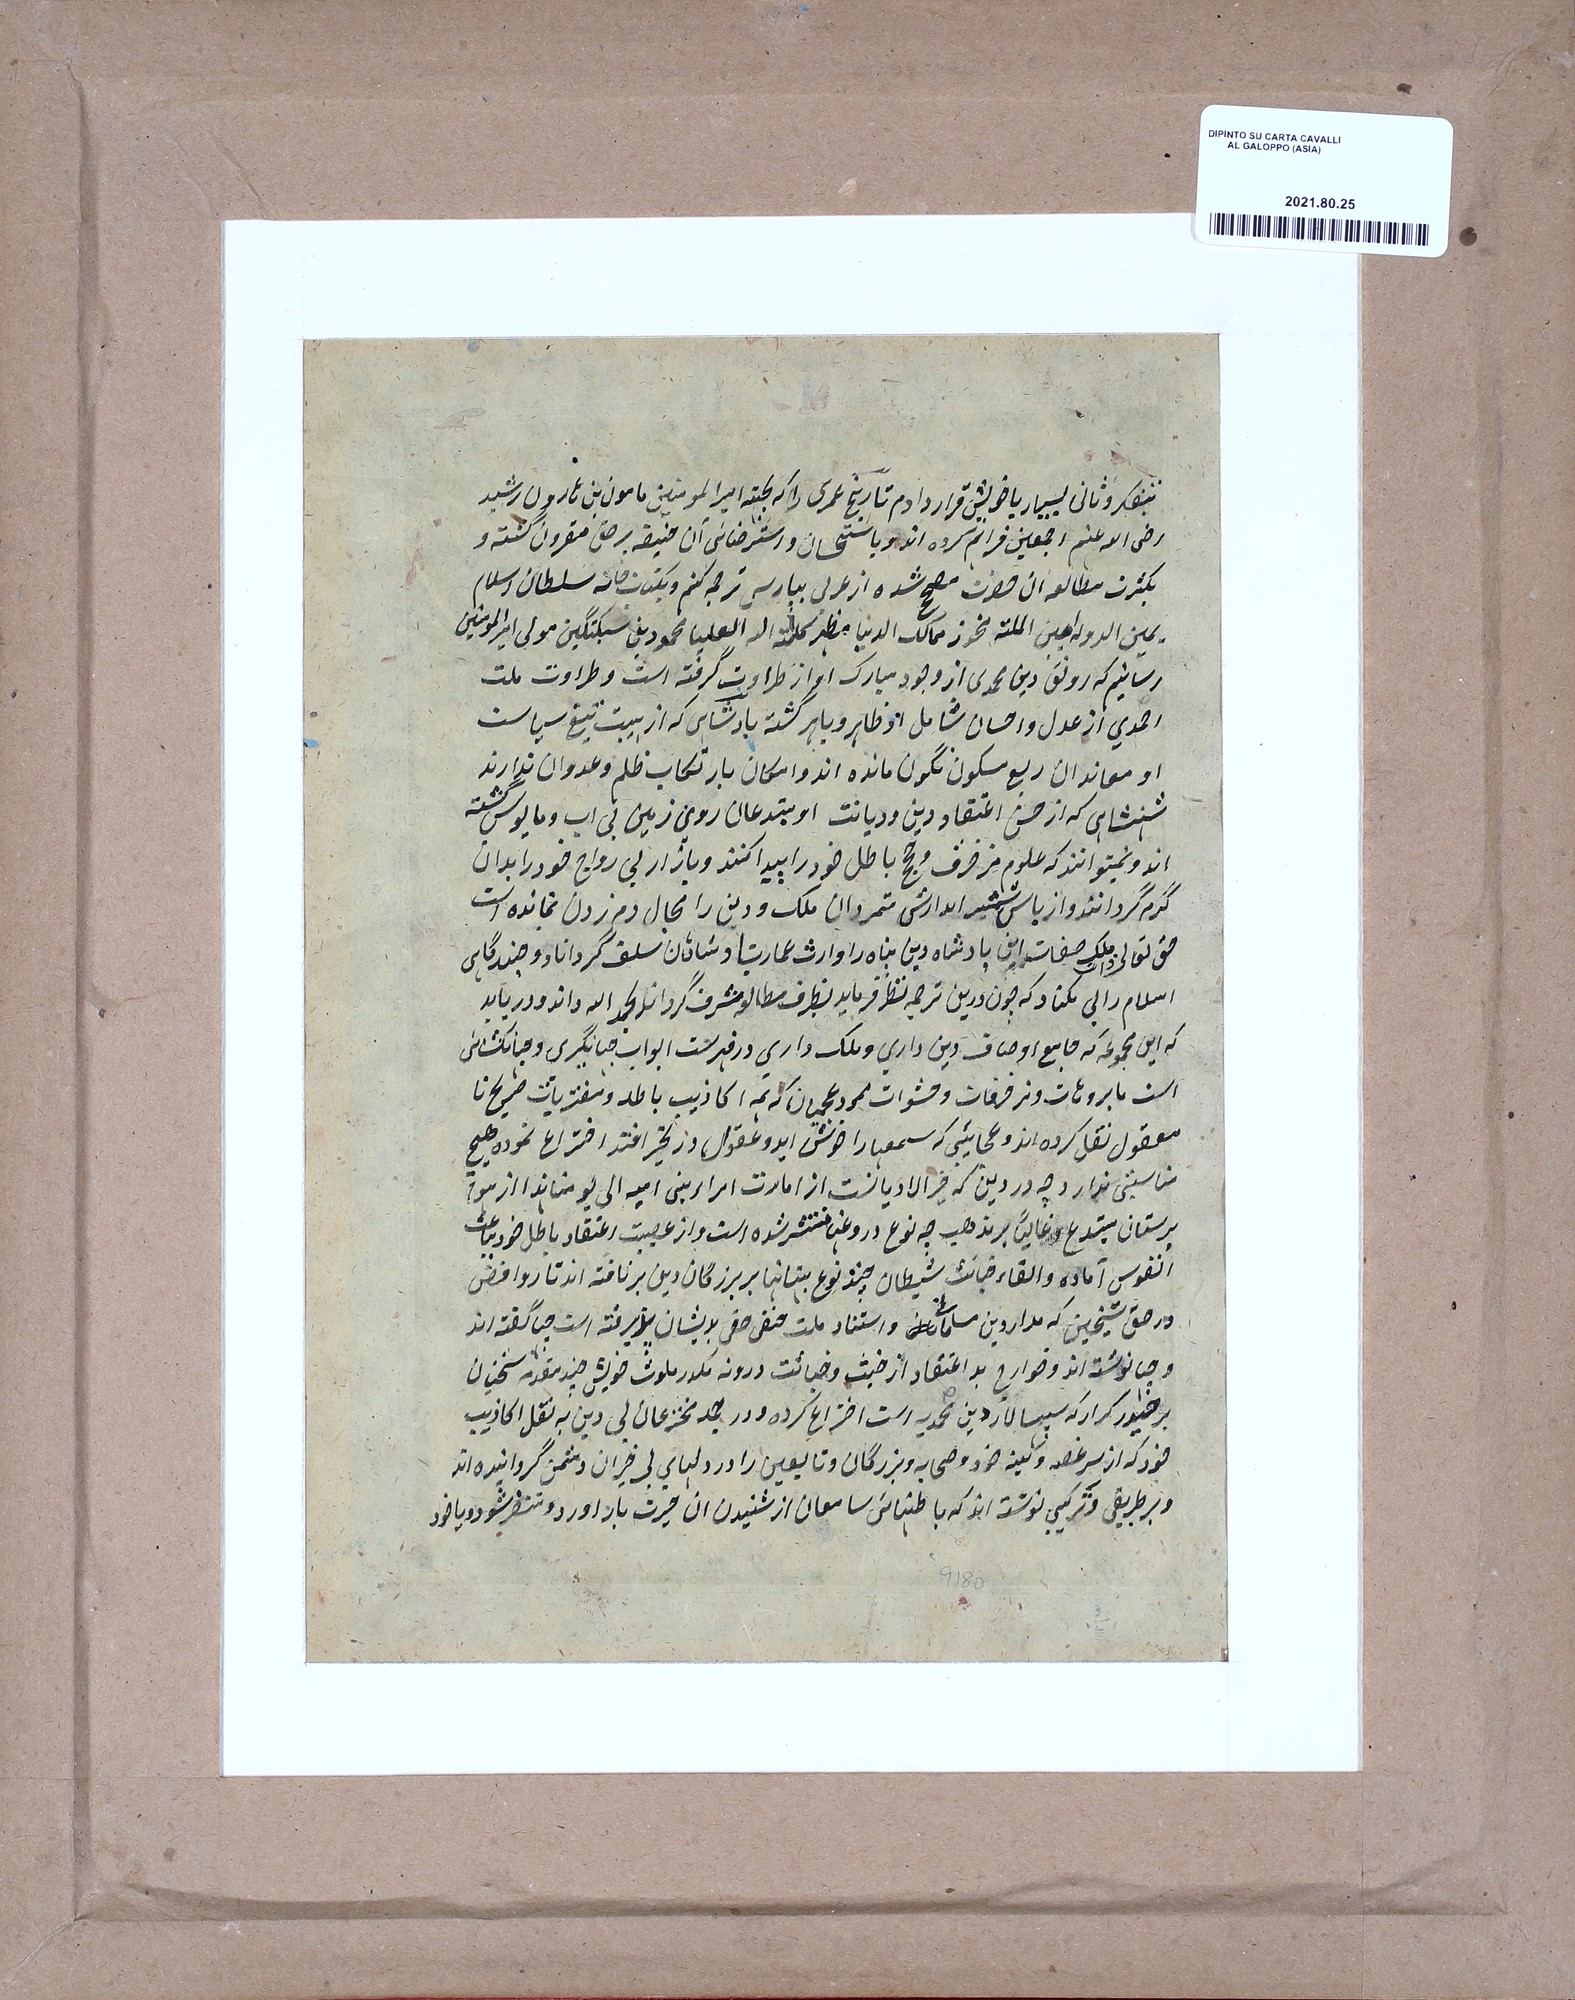 DIPINTO SU CARTA CAVALLI
AL GALOPPO (ASIA)
2021.80.25
بسیار با خویش قرار دادم تاریخ عمری را که بجهته امیرالمومنین مامون بن هارون رشید
رضی الله عنهم اجمعین فراهم کرده اند و باستحسان و استرضائی آن خلیفه برحق مقرون گشته و
بکثرت مطالعه ان حضرت مصحح شده از عربی بپارسی ترجمه کنم و بکتاب خانه سلطان اسلام
یمین الدوله امین الملته ممالک الدنیا مظهر کلمة الله العلیا محمود بن سبکتگین مولی امیرالمومنین
رسانیم که رونق دین محمدی از وجود مبارک او از طراوت گرفته است و طراوت ملت
احمدي از عدل و احسان شامل او ظاهر و باهر گشته بادشاهی که از هیبت تیغ سیاست
او معاندان ربع مسکون نگون مانده اند و امکان بارتکاب ظلم و عدوان ندارند
شهنشاهی که از حسن اعتقاد دین و دیانت او مبتدعان روی زمین بی اب و مایوس گشته
اند و نمیتوانند که علوم مزخرف و حجج باطل خود را پیدا کنند و بازار بی رواج خود را بدان
گرم گردانند و از باس شمشیر ابدارش متمردان ملک و دین را مجال دم زدن نمانده است
حق تعالی ذات ملک صفات این پادشاه دین پناه را وارث سلف گرداناد و چندگاهی
اسلام را که چون درین ترجمه نظر فرماید بطرف مطالعه مشرف گرداند بحمد الله داند و دریابد
که این مجموعه که جامع اوصاف دین داری و ملک داری در فهرست ابواب جهانگیری و جهانکشائی
است با برهات و مزخرفات و حشوات عجمیان که همه اکاذیب باطله و مفتریات صریح نا
معقول نقل کرده اند و عجائبی که سمعها را خوش اید و عقول در تحیر افتد اختراع نموده هیچ
مناسبتی ندارد چه در دین که خیر الادیانست از امارت امراء بنی امیه الی یومنا هذا از هوا
پرستان مبتدع و غالیان بدمذهب چه نوع دروغها منتشر شده است و از عصبیت اعتقاد باطل خود بباعث
انفوس آماده و القاء خباثت شیطان چند نوع بهتانها بر بزرگان دین برتافته اند تا روافض
در حق شیخین که مدار دین مسلمانی و استناد ملت حنفی حق بایشان پذیرفته است چها گفته اند
و چها نوشته اند و خوارج بد اعتقاد از خبث و خباثت درونه مکدر ملوث خویش چند سخنان
بر حیدر کرار که سپسالار دین محمدیه است اختراع کرده و در جمله مخترعان بی دین به نقل اکاذیب
خود که از سر غصه و کینه خود صحابه و بزرگان و تابعین را در دلهای بی خبران دشمن گردانیده اند
و بر طریقی و ترکیبی نوشته اند که باطنهای سامعان از شنیدن ان حیرت بار اورد و متنفر شود و با خود
9180